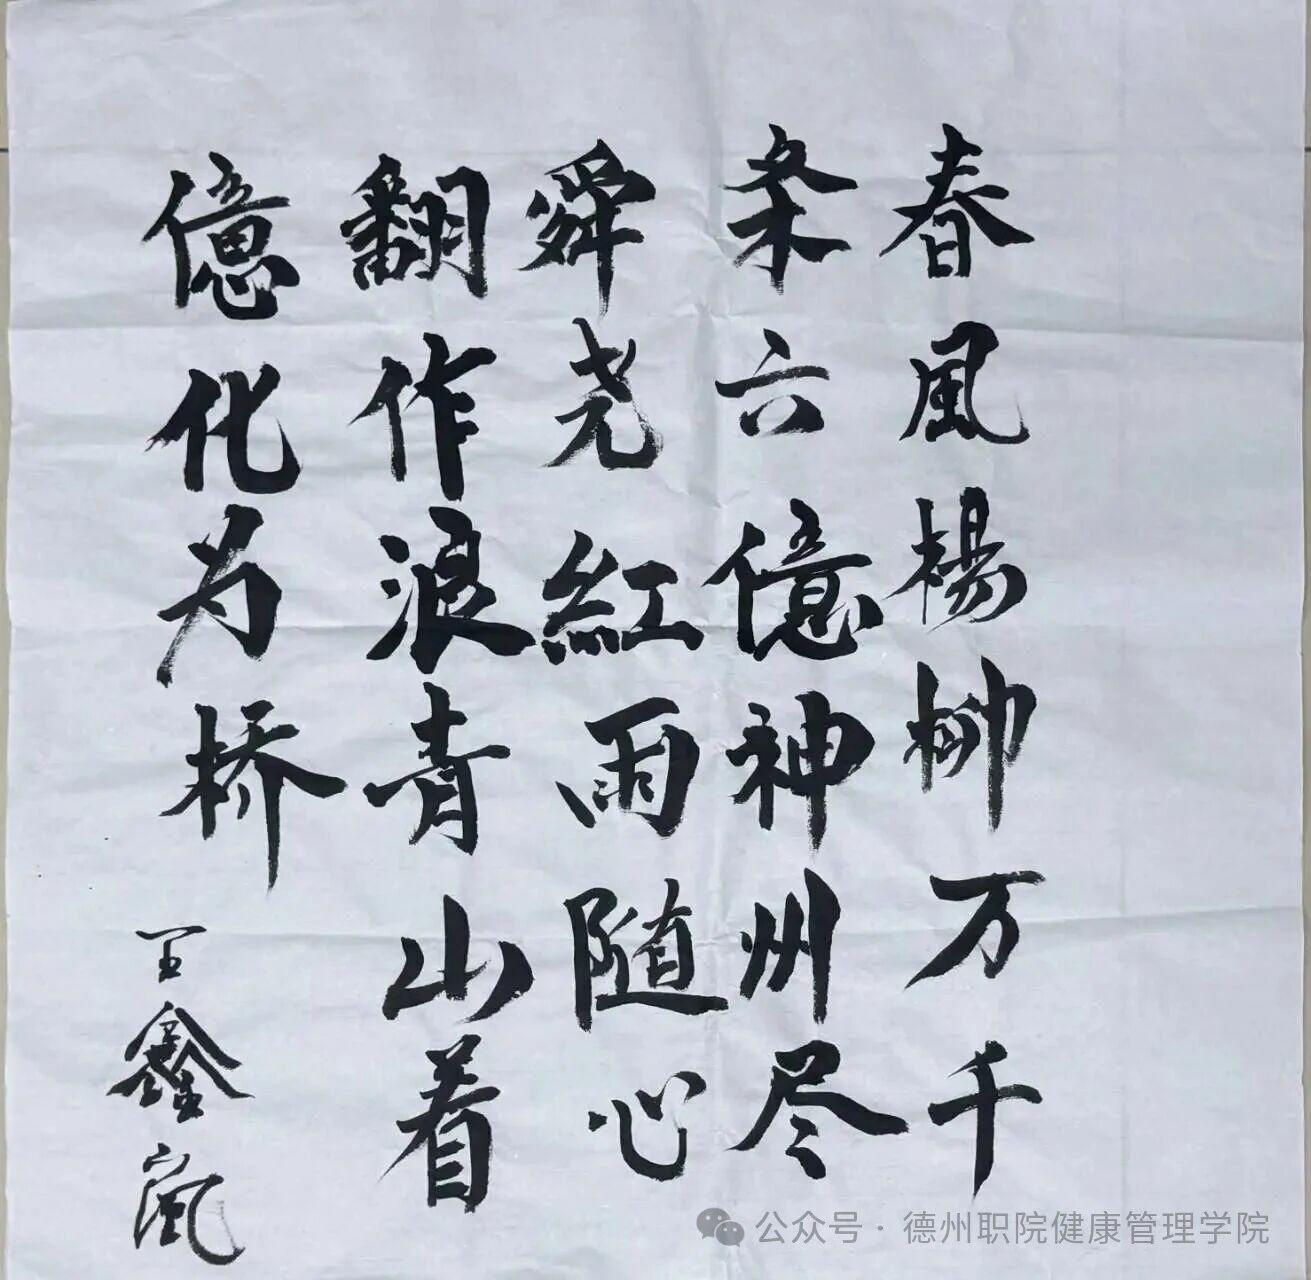 春風楊柳万千
条六億神州尽
舜尧紅雨随心
翻作浪青山着
億化为桥
王鑫嵐
公众号·德州职院健康管理学院